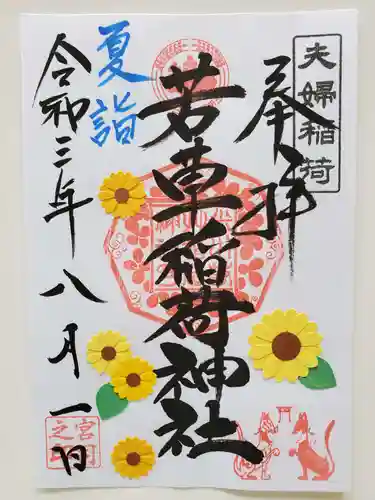 夫婦稲荷
奉拝
若草稲荷神社
夏詣
令和三年八月一日